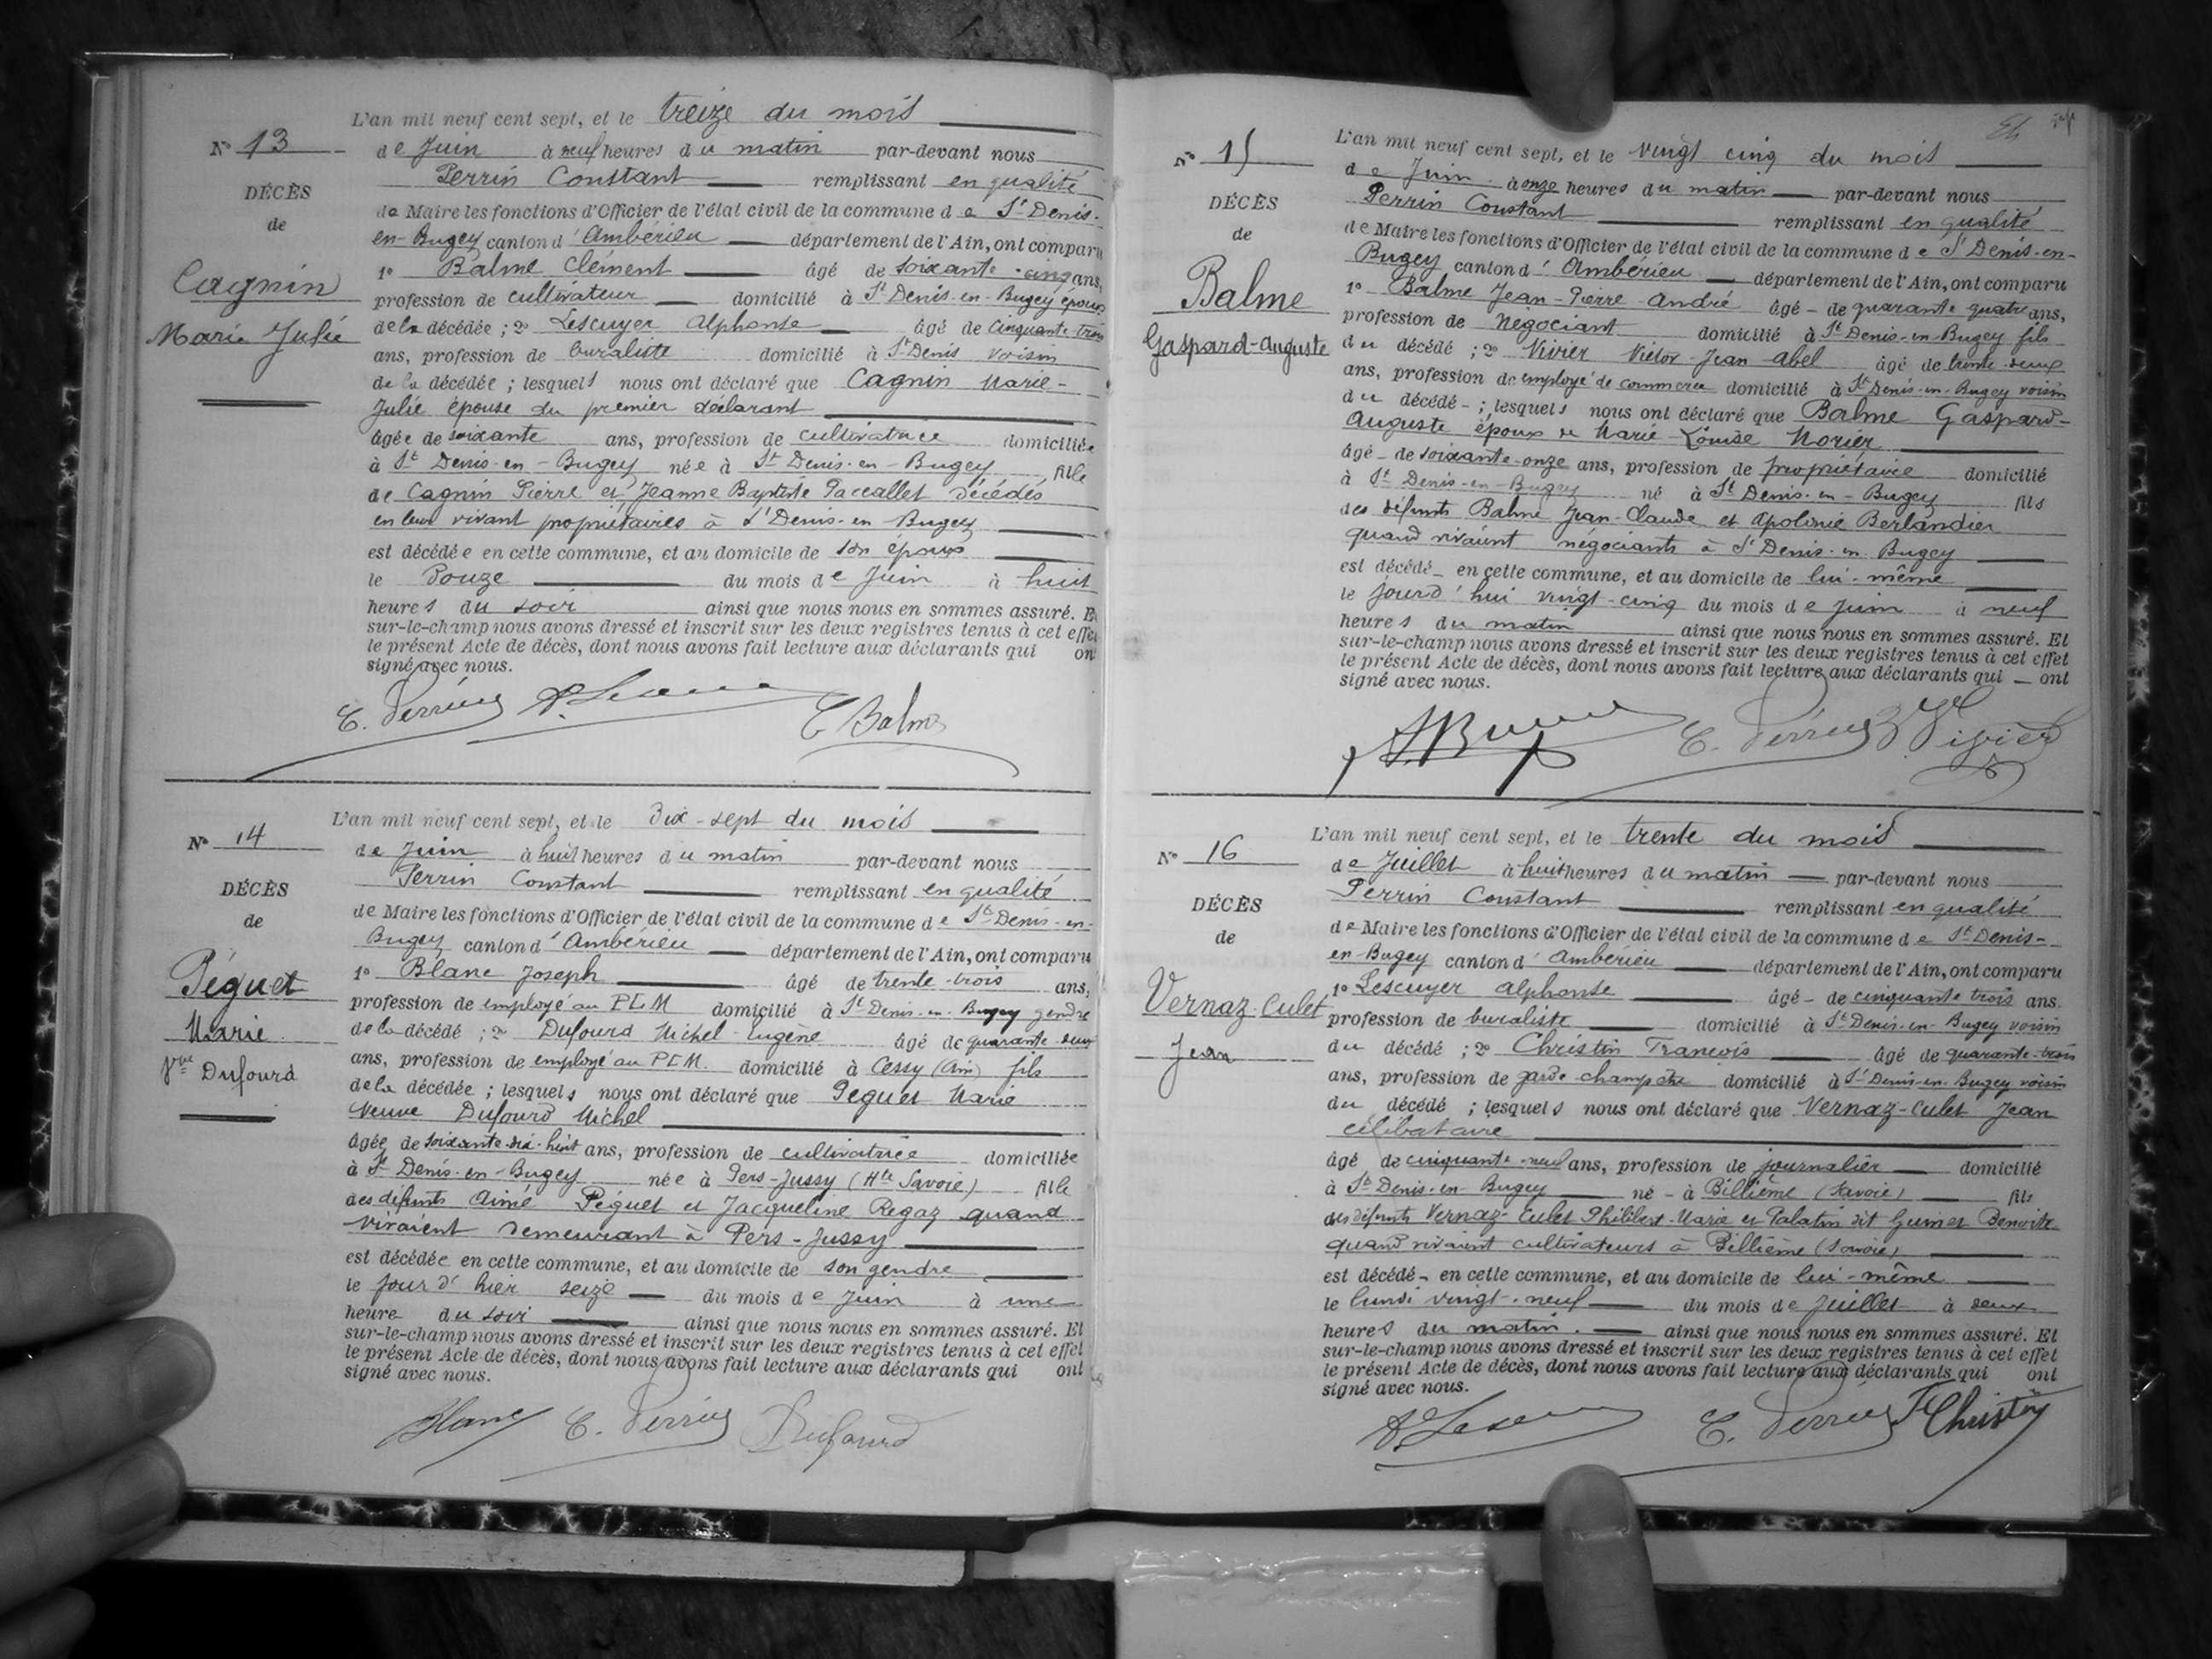 L'an mil neuf cent sept, et le treize du mois
N° 13
de Juin à neuf heures du matin par-devant nous
Perrin Constant remplissant en qualité
DÉCÈS
de Maire les fonctions d'Officier de l'état civil de la commune de St Denis-
de
en-Bugey canton d'Ambérieu département de l'Ain, ont comparu
1° Balme Clément âgé de soixante-cinq ans,
Cagnin
profession de cultivateur domicilié à St Denis-en-Bugey époux
Marie Julie
de la décédée ; 2° Lescuyer Alphonse âgé de cinquante-trois
ans, profession de buraliste domicilié à St Denis voisin
de la décédée ; lesquels nous ont déclaré que Cagnin Marie-
Julie épouse du premier déclarant
âgée de soixante ans, profession de cultivatrice domiciliée
à St Denis-en-Bugey née à St Denis-en-Bugey fille
de Cagnin Pierre et Jeanne Baptiste Paccallet décédés
en leur vivant propriétaires à St Denis-en-Bugey
est décédée en cette commune, et au domicile de son époux
le Douze du mois de Juin à huit
heures du soir ainsi que nous nous en sommes assuré. Et
sur-le-champ nous avons dressé et inscrit sur les deux registres tenus à cet effet
le présent Acte de décès, dont nous avons fait lecture aux déclarants qui ont
signé avec nous.
C. Perrin C Balme
L'an mil neuf cent sept, et le Dix-sept du mois
N° 14
de Juin à huit heures du matin par-devant nous
Perrin Constant remplissant en qualité
DÉCÈS
de Maire les fonctions d'Officier de l'état civil de la commune de St Denis-en-
de
Bugey canton d'Ambérieu département de l'Ain, ont comparu
1° Blanc Joseph âgé de trente-trois ans,
Péguet
profession de employé au PLM domicilié à St Denis-en-Bugey gendre
Marie
de la décédé ; 2° Dufourd Michel-Eugène âgé de quarante-deux
Vve Dufourd
ans, profession de employé au PLM. domicilié à Cessy (Ain) fils
de la décédée ; lesquels nous ont déclaré que Péguet Marie
Veuve Dufourd Michel
âgée de soixante-dix-huit ans, profession de cultivatrice domiciliée
à St Denis-en-Bugey née à Pers-Jussy (Hte Savoie) fille
des défunts Aimé Péguet et Jacqueline Regaz quand
vivaient demeurant à Pers-Jussy
est décédée en cette commune, et au domicile de son gendre
le jour d'hier seize du mois de Juin à une
heure du soir ainsi que nous nous en sommes assuré. Et
sur-le-champ nous avons dressé et inscrit sur les deux registres tenus à cet effet
le présent Acte de décès, dont nous avons fait lecture aux déclarants qui ont
signé avec nous.
Blanc C. Perrin Dufourd
L'an mil neuf cent sept, et le vingt cinq du mois
N° 15
de Juin à onze heures du matin par-devant nous
Perrin Constant remplissant en qualité
DÉCÈS
de Maire les fonctions d'Officier de l'état civil de la commune de St Denis-en-
de
Bugey canton d'Ambérieu département de l'Ain, ont comparu
1° Balme Jean-Pierre-André âgé de quarante quatre ans,
Balme
profession de Négociant domicilié à St Denis-en-Bugey fils
Gaspard-Auguste
du décédé ; 2° Vivier Victor-Jean Abel âgé de trente-deux
ans, profession de employé de commerce domicilié à St Denis-en-Bugey voisin
du décédé ; lesquels nous ont déclaré que Balme Gaspard-
Auguste époux de Marie-Louise Morier
âgé de soixante-onze ans, profession de propriétaire domicilié
à St Denis-en-Bugey né à St Denis-en-Bugey fils
des défunts Balme Jean-Claude et Apolonie Berlandier
quand vivaient négociants à St Denis-en-Bugey
est décédé en cette commune, et au domicile de lui-même
le jourd'hui vingt-cinq du mois de Juin à neuf
heures du matin ainsi que nous nous en sommes assuré. Et
sur-le-champ nous avons dressé et inscrit sur les deux registres tenus à cet effet
le présent Acte de décès, dont nous avons fait lecture aux déclarants qui ont
signé avec nous.
C. Perrin Vivier
L'an mil neuf cent sept, et le trente du mois
N° 16
de Juillet à huit heures du matin par-devant nous
Perrin Constant remplissant en qualité
DÉCÈS
de Maire les fonctions d'Officier de l'état civil de la commune de St Denis-
de
en-Bugey canton d'Ambérieu département de l'Ain, ont comparu
1° Lescuyer Alphonse âgé de cinquante trois ans.
Vernaz-Culet
profession de buraliste domicilié à St Denis-en-Bugey voisin
Jean
du décédé ; 2° Christin François âgé de quarante-trois
ans, profession de garde-champêtre domicilié à St Denis-en-Bugey voisin
du décédé ; lesquels nous ont déclaré que Vernaz-Culet Jean
célibataire
âgé de cinquante-neuf ans, profession de journalier domicilié
à St Denis-en-Bugey né à Billième (Savoie) fils
des défunts Vernaz-Culet Philibert-Marie et Palatin dit Guinet Benoite
quand vivaient cultivateurs à Billième (Savoie)
est décédé en cette commune, et au domicile de lui-même
le lundi vingt-neuf du mois de Juillet à deux
heures du matin. ainsi que nous nous en sommes assuré. Et
sur-le-champ nous avons dressé et inscrit sur les deux registres tenus à cet effet
le présent Acte de décès, dont nous avons fait lecture aux déclarants qui ont
signé avec nous.
C. Perrin F Christin